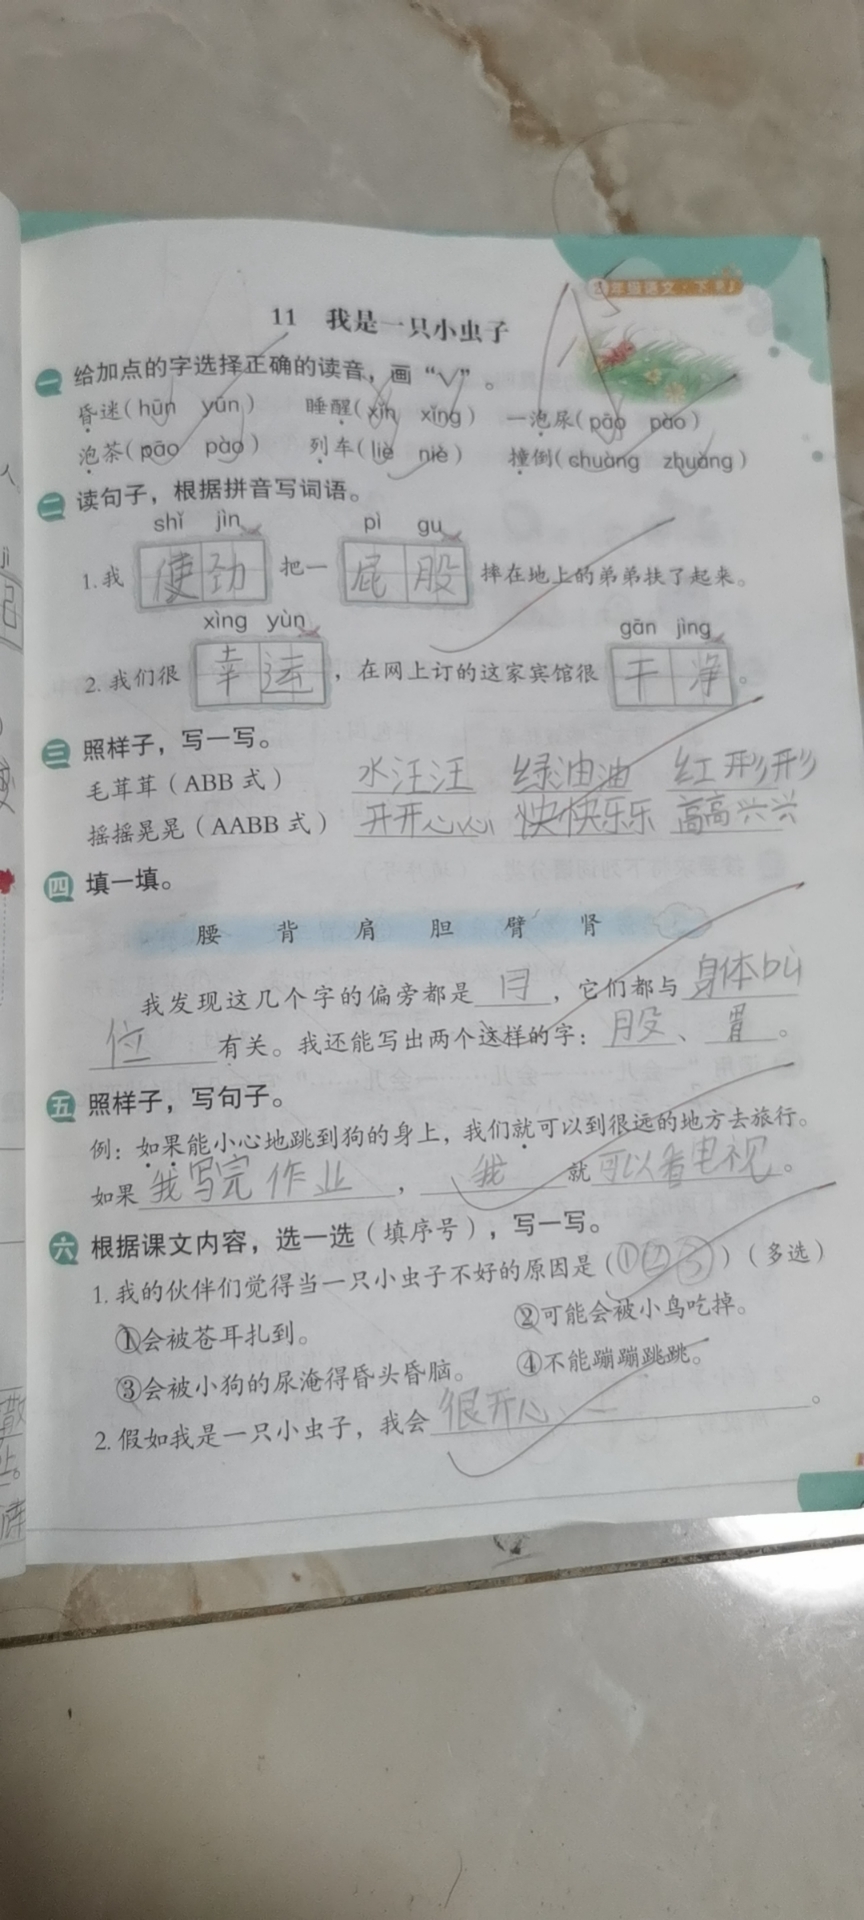 年级语文·下
11 我是一只小虫子
一 给加点的字选择正确的读音，画“√”。
昏迷(hūn yūn) 睡醒(xǐn xǐng) 一泡尿(pāo pào)
泡茶(pāo pào) 列车(liè niè) 撞倒(chuàng zhuàng)
二 读句子，根据拼音写词语。
shǐ jìn pì gu
1.我 使劲 把一 屁股 摔在地上的弟弟扶了起来。
xìng yùn gān jìng
2.我们很 幸运 ，在网上订的这家宾馆很 干净 。
三 照样子，写一写。
毛茸茸（ABB 式） 水汪汪 绿油油 红形形
摇摇晃晃（AABB 式） 开开心心 快快乐乐 高高兴兴
四 填一填。
腰 背 肩 胆 臂 肾
我发现这几个字的偏旁都是 月 ，它们都与 身体bù
位 有关。我还能写出两个这样的字： 股 、 胃 。
五 照样子，写句子。
例：如果能小心地跳到狗的身上，我们就可以到很远的地方去旅行。
如果 我写完作业 ， 我 就 可以看电视 。
六 根据课文内容，选一选（填序号），写一写。
1.我的伙伴们觉得当一只小虫子不好的原因是(①②③)（多选）
①会被苍耳扎到。 ②可能会被小鸟吃掉。
③会被小狗的尿淹得昏头昏脑。 ④不能蹦蹦跳跳。
2.假如我是一只小虫子，我会 很开心 。